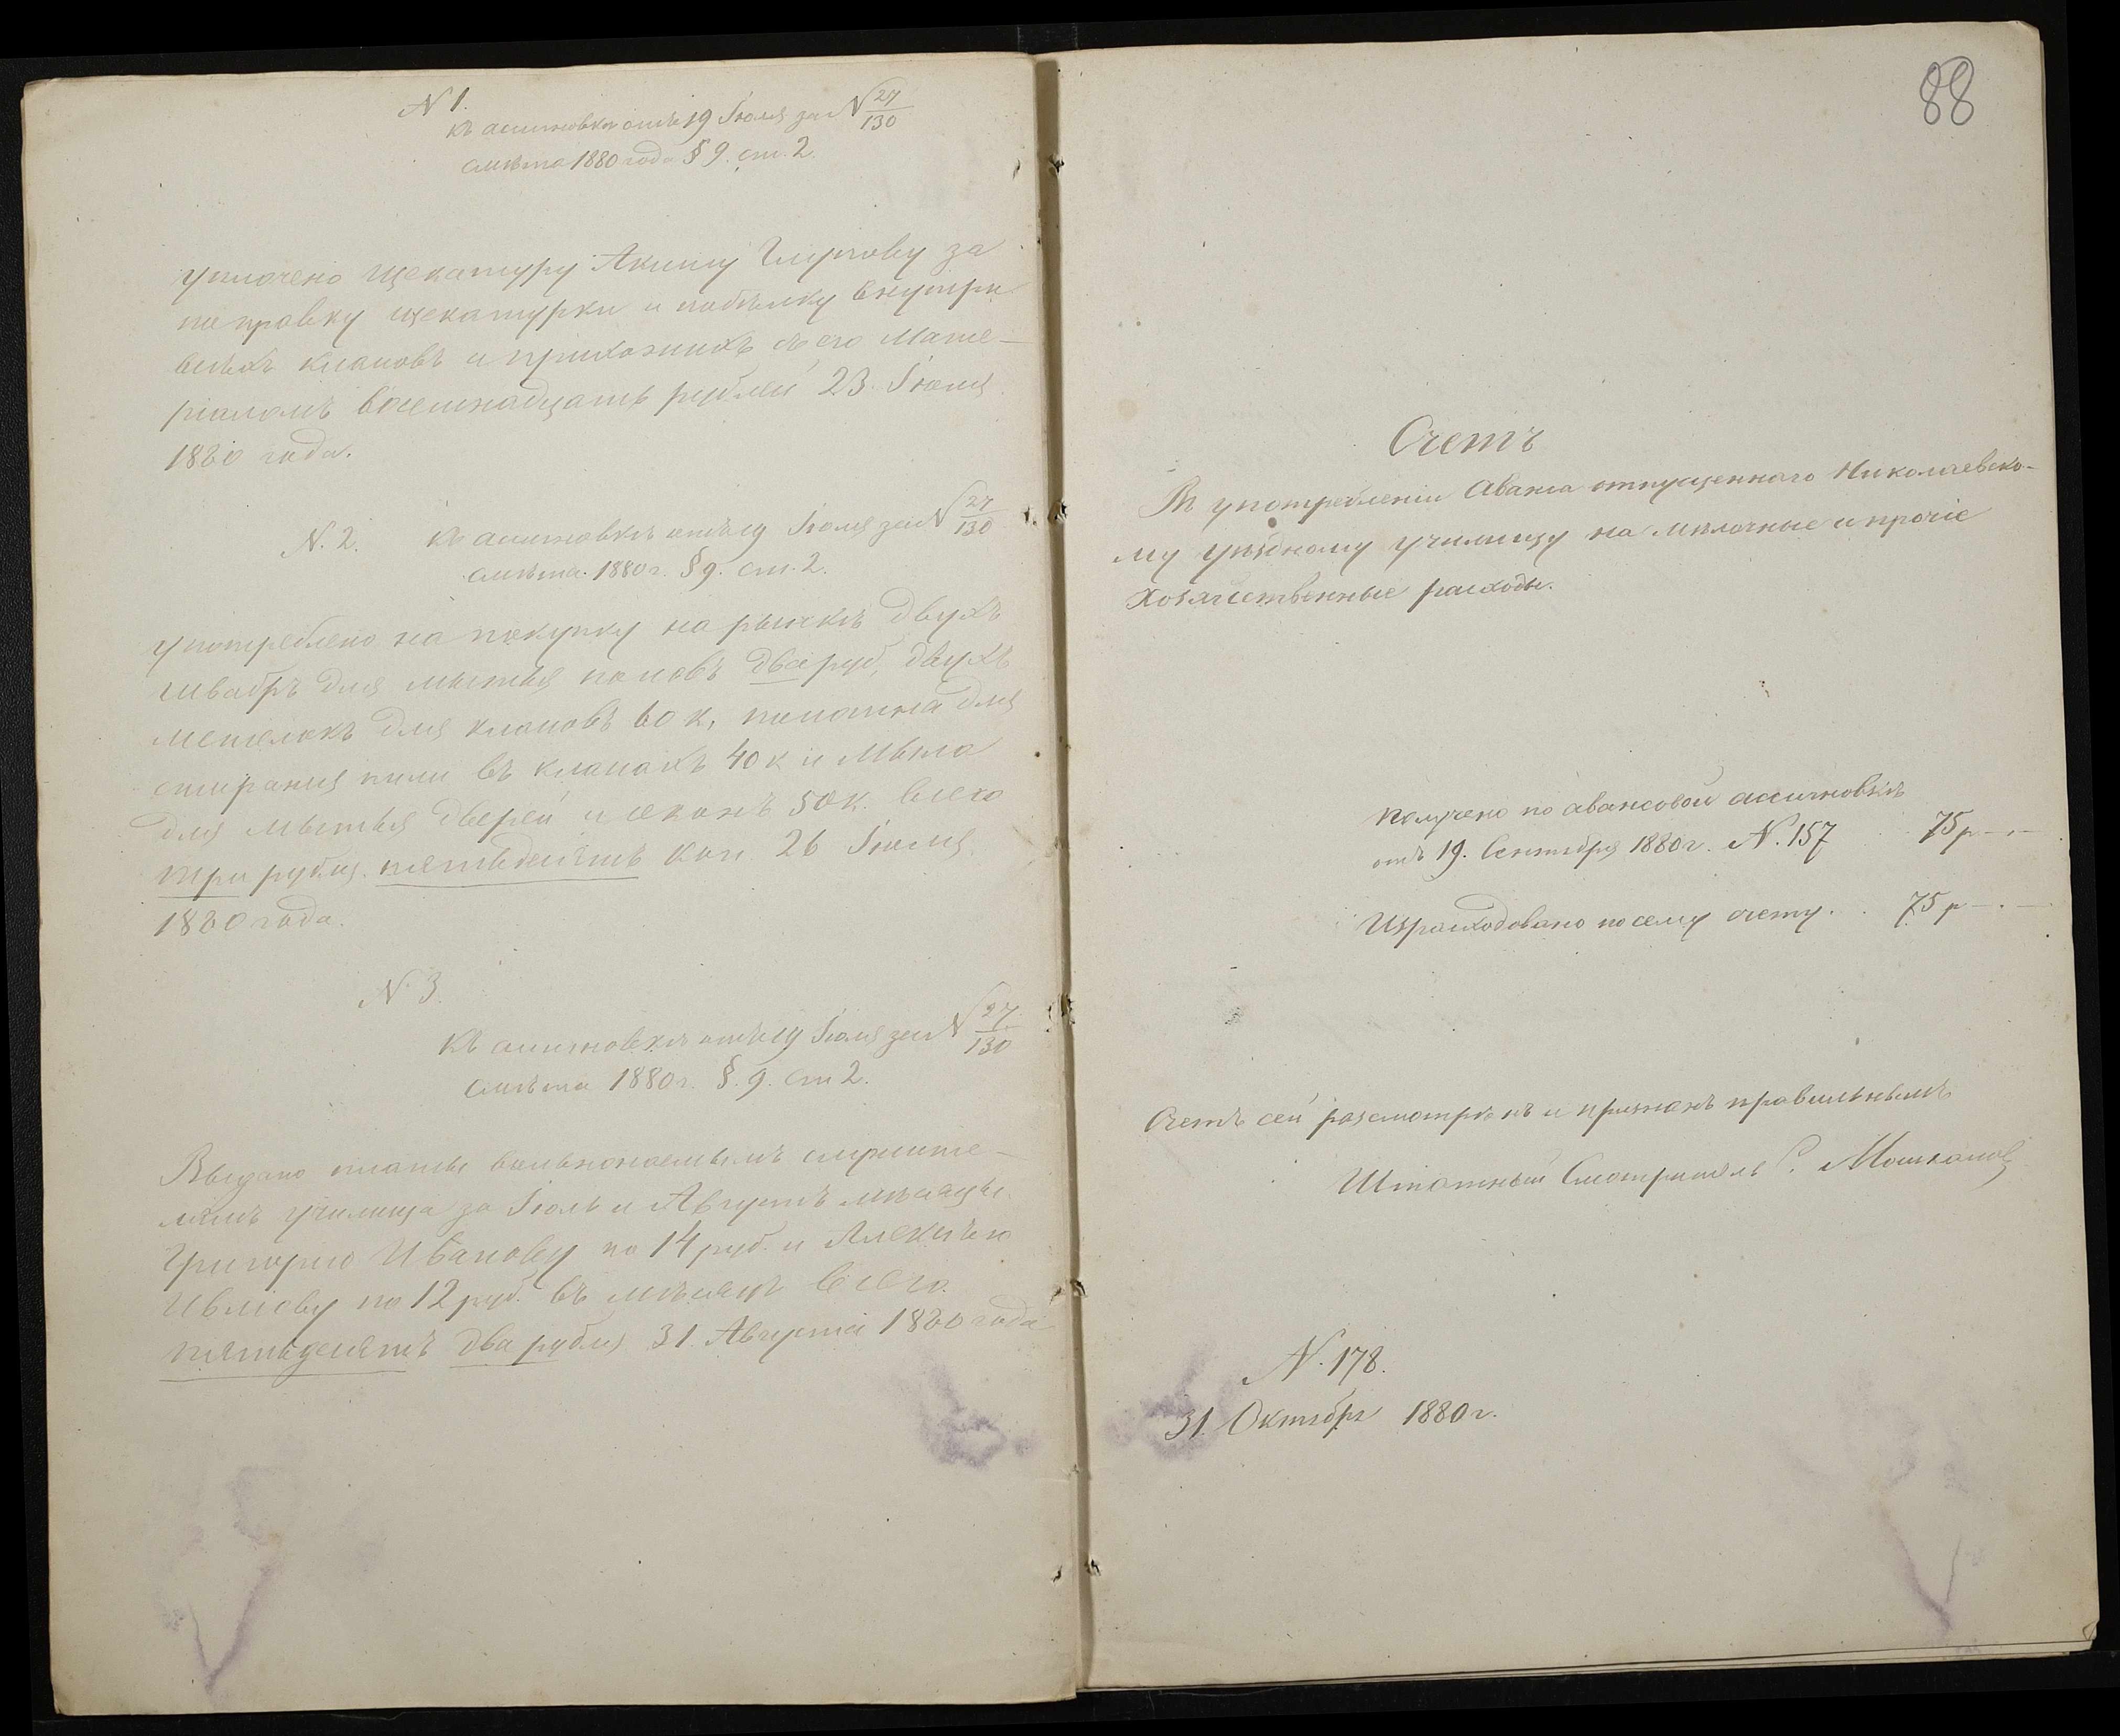 N 1.
къ ассигновке отъ 19 Іюля за N 27/130
смѣта 1880 года § 9. ст. 2.
уплочено щекатуру Акиму за
поправку щекатурки и побѣлку внутри
всѣхъ класовъ и прихожихъ съ его мате-
ріаломъ восемнадцать рублей 23 Іюля
1880 года.
N. 2. къ ассигновкѣ отъ 19 Іюля за N 27/130
смѣта 1880 г. § 9. ст. 2.
употреблено на покупку на рынкѣ двухъ
швабръ для мытья половъ два руб, двухъ
метелокъ для класовъ 60 к, полотна для
стиранія пыли въ класахъ 40 к и мыла
для мытья дверей и оконъ 50 к. всего
три рубля пятьдесятъ коп 26 Іюля
1880 года.
N. 3.
Къ ассигновкѣ отъ 19 Іюля за N 27/130
смѣта 1880 г. §. 9. ст 2.
Выдано платы вольнонаемнымъ служите-
лямъ училища за Іюль и Августъ мѣсяцы
Григорію Иванову по 14 руб. и Алексѣю
Ивлiеву по 12 руб. въ мѣсяцъ всего
пятьдесятъ два рубля 31 Августа 1880 года
88
Счетъ
Въ употребленіи аванса отпущеннаго Николаевско-
му уѣздному училищу на мѣлочные и прочіе
Хозяйственные расходы.
Получено по авансовой ассигновкѣ
отъ 19. Сентября 1880 г. N. 157 75 р — . —
Израсходовано по сему счету. . 75 р — . —
Счетъ сей разсмотрѣнъ и признанъ правильнымъ
Штатный Смотритель
N. 178.
31 Октября 1880 г.